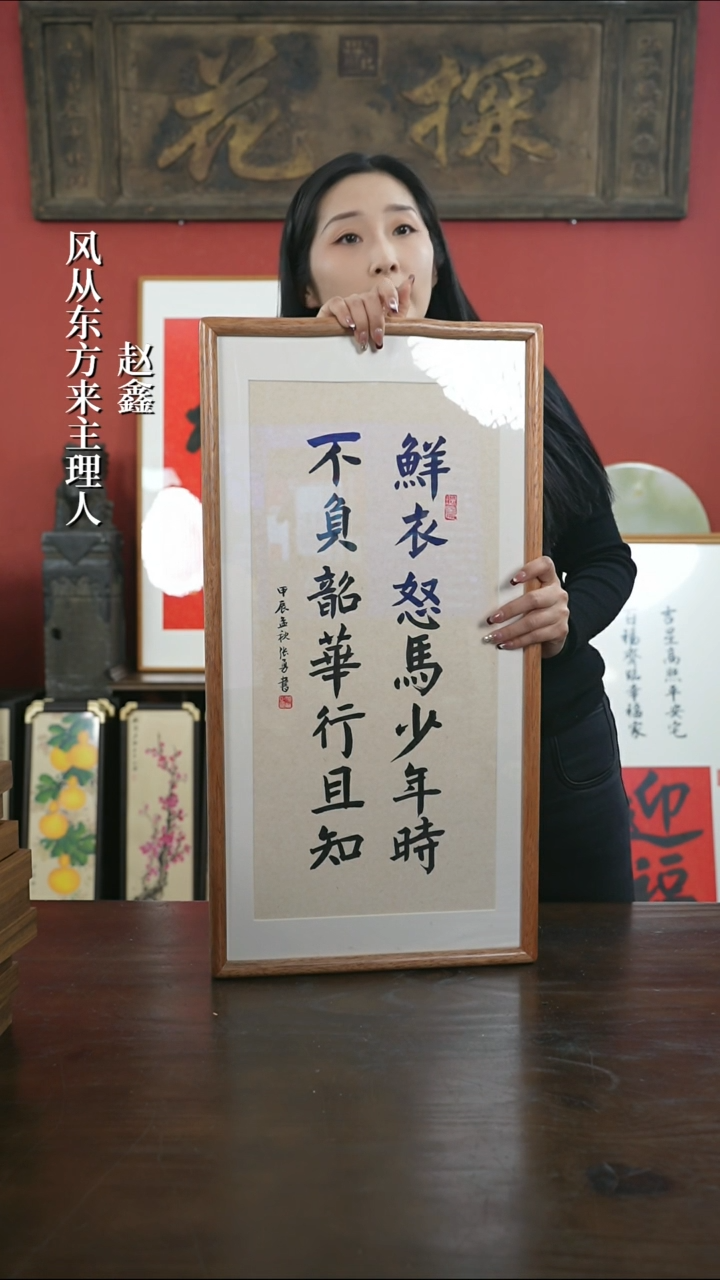 探花
风从东方来主理人
赵鑫
鮮衣怒馬少年時
不負韶華行且知
甲辰孟秋
書
吉星高照平安宅
百福齊臨幸福家
迎福